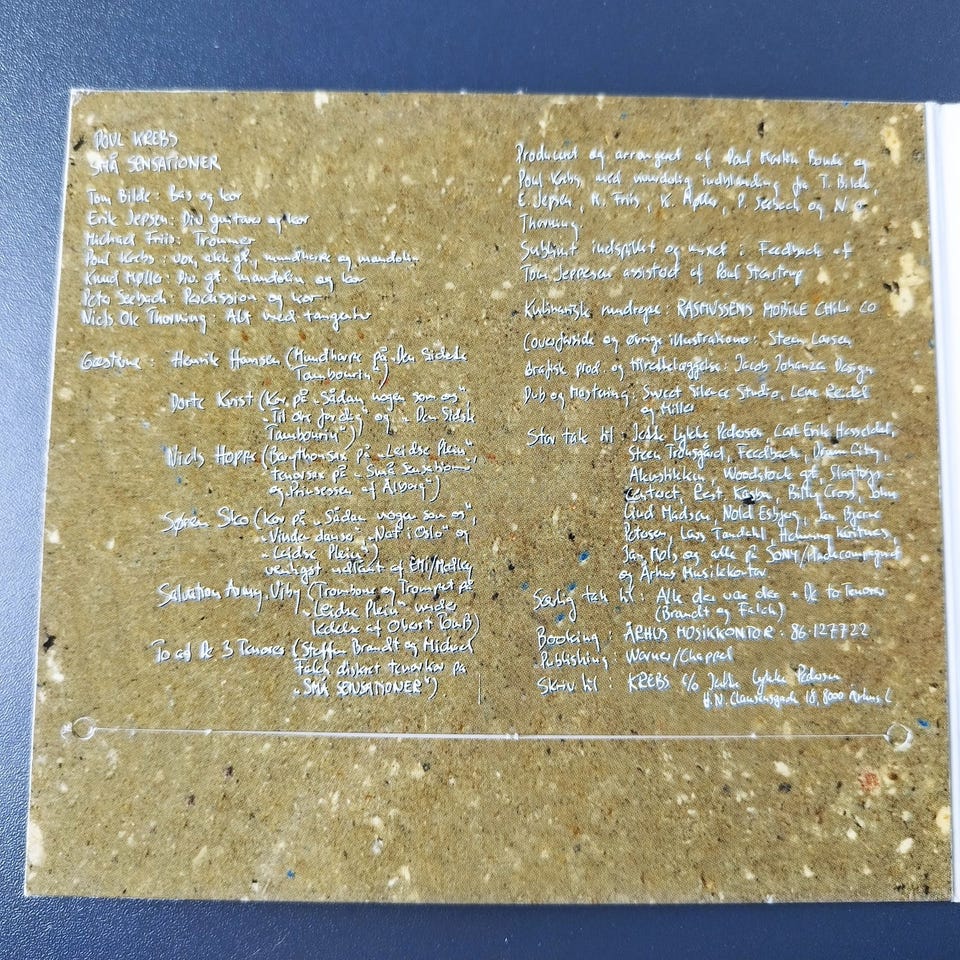 POUL KREBS
SMÅ SENSATIONER
Tom Bilde: Bas og kor
Erik Jepsen: Div guitarer og kor
Michael Friis: Trommer
Poul Krebs: vox, akk gt, mundharpe og mandolin
Knud Møller: Div. gt. mandolin og kor
Peter Seebach: Percussion og kor
Niels Ole Thorning: Alt med tangenter
Gæsterne: Henrik Hansen (Mundharpe på „Den Sidste
Tambourin")
Dorte Krist (Kor på „Sådan nogen som os",
„Til dig" og „Den Sidste
Tambourin")
Niels Hoppe (Barytonsax på „Leidse Plein",
tenorsax på „Små Sensationer
og „Prinsessen af Ålborg")
Søren Sko (Kor på „Sådan nogen som os",
„Vinden danser", „Nat i Oslo" og
„Leidse Plein")
venligst udlånt af EMI/Medley
Salvation Army, Viby (Trombone og Trompet på
„Leidse Plein" under
ledelse af
To af De 3 Tenorer (Steffen Brandt og Michael
Falch diskret tenorkor på
„SMÅ SENSATIONER")
Produceret og arrangeret af Poul og
Poul Krebs, med indblanding fra T. Bilde,
E. Jepsen, M. Friis, K. Møller, P. Seebach og N O
Thorning
Sublimt indspillet og mixet i Feedback af
Tom Jeppesen assisteret af Poul
Kulinarisk RASMUSSENS MOBILE CHILI CO
Coverforside og øvrige illustrationer: Steen Larsen
Grafisk prod. og tilrettelæggelse: Jacob Johansen Design
Dub og Mastering: Sweet Silence Studio, Lene Reidel
og Miller
Stor tak til: Jette Lykke Pedersen, Carl Erik Hasseldal,
Steen Feedback, Drum City,
Akustikken, Woodstock gt, Slagtøjs-
Contact, Billy Cross, John
Lind Madsen, Nold Esbjug, Jan Bjerne
Petersen, Lars Tandahl, Henning
Jan Mols og alle på SONY/Pladecompagniet
og Århus Musikkontor
Særlig tak til: Alle der var der + De to Tenorer
(Brandt og Falch)
Booking: ÅRHUS MUSIKKONTOR: 86-127722
Publishing: Warner/Chappel
Skriv til: KREBS c/o Jette Lykke Pedersen
H.N. Clausensgade 18, 8000 Århus C